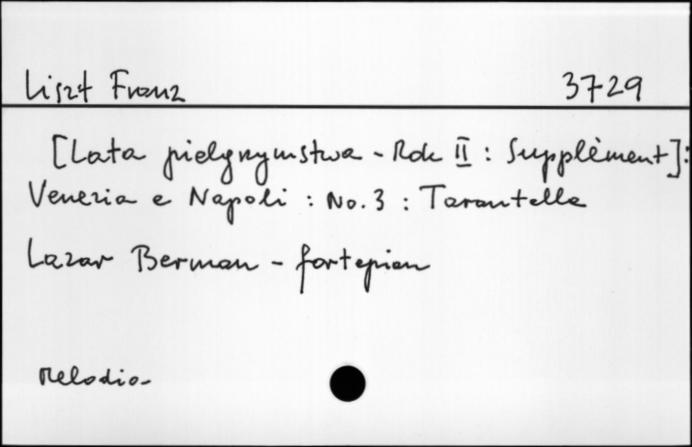 Liszt Franz 3729
[Lata pielgrzymstwa - Rok II : Supplèment]:
Venezia e Napoli : No. 3 : Tarantella
Lazar Berman - fortepian
Melodia